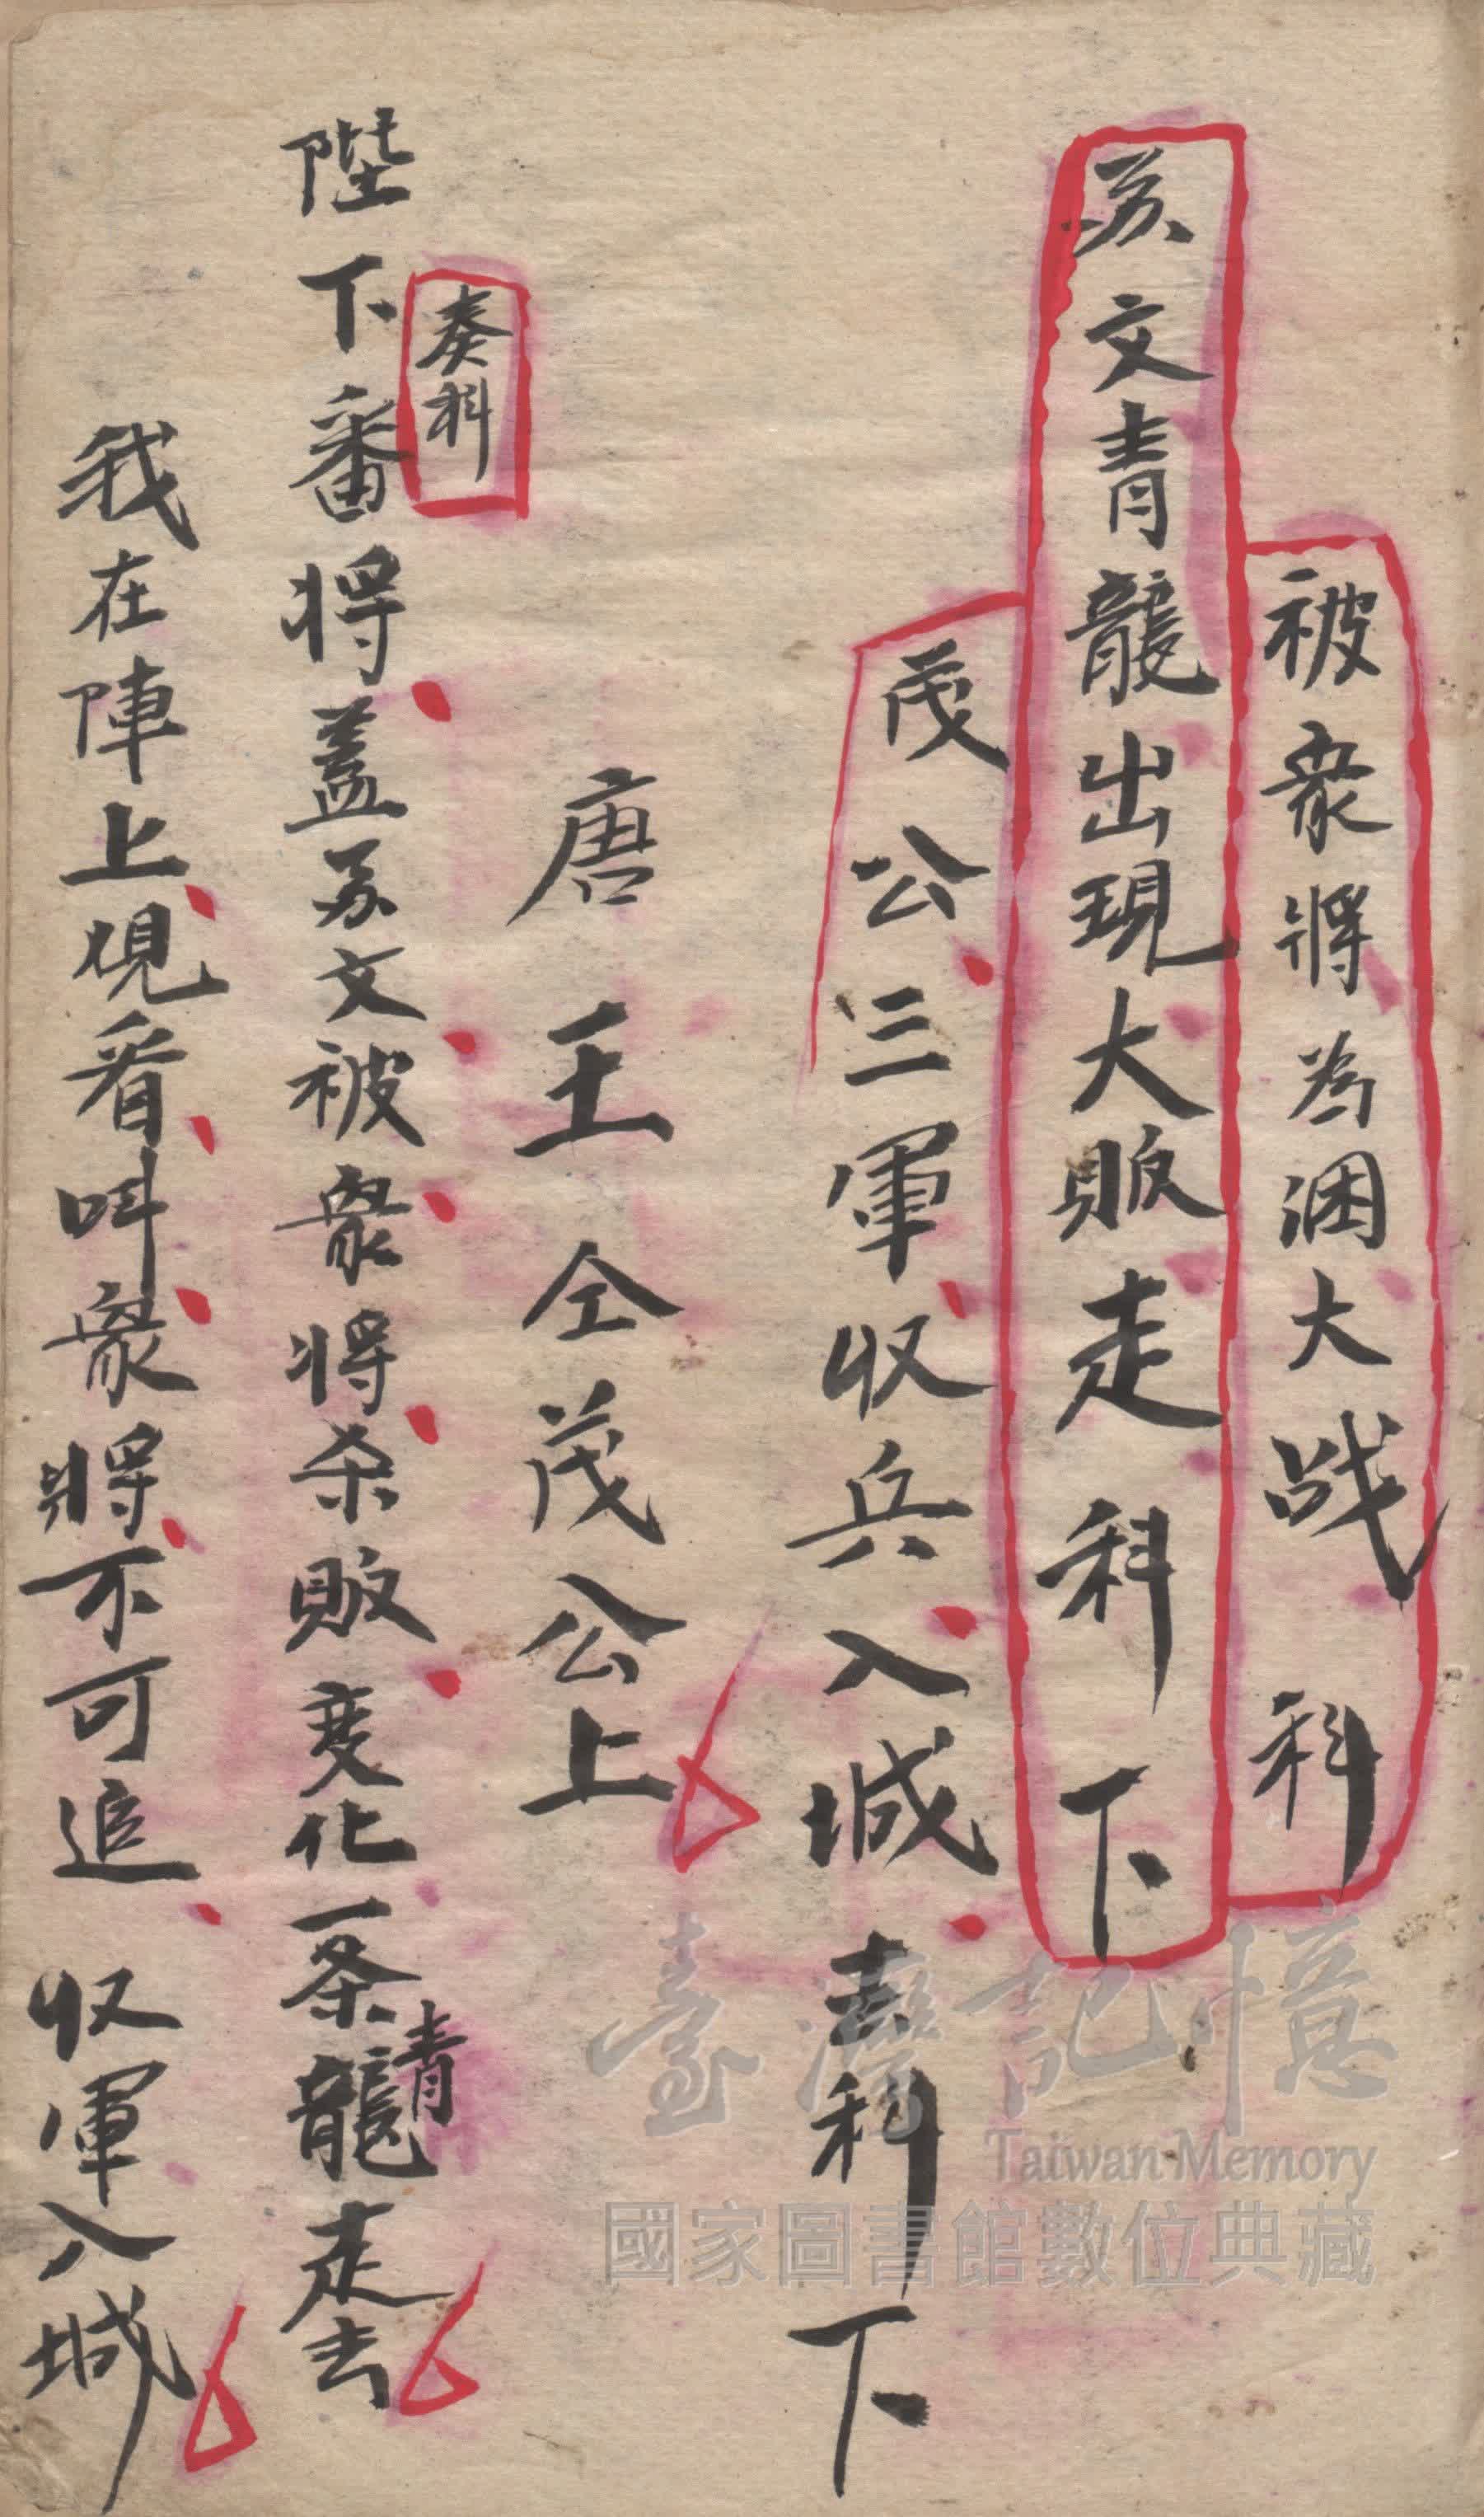 被衆將為困大战 科
苏文青龍出現大販走科下
茂公三軍収兵入城 去科下
唐王仝茂公上
奏科
陛下番将蓋苏文被衆将杀販变化一条青龍走去
我在陣上覌看呌衆將不可追 収軍入城
臺灣記憶
Taiwan Memory
國家圖書館數位典藏